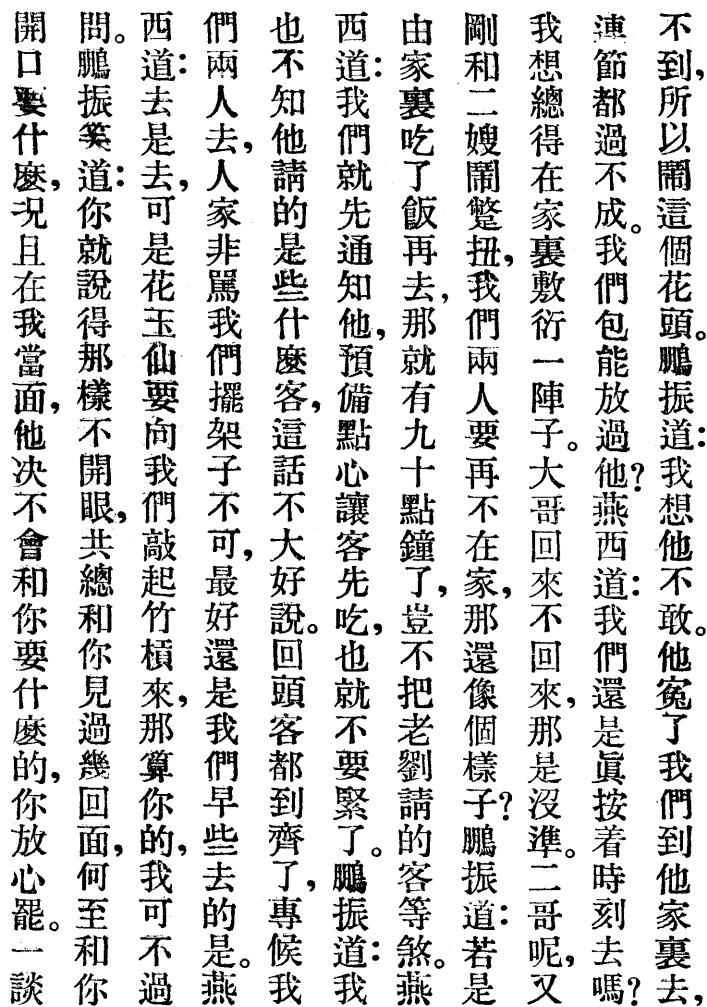 不到，所以鬧這個花頭。鵬振道：我想他不敢。他寃了我們到他家裏去，
連節都過不成。我們包能放過他？燕西道：我們還是眞按着時刻去嗎？
我想總得在家裏敷衍一陣子。大哥回來不回來，那是沒準。二哥呢，又
剛和二嫂鬧蹩扭，我們兩人要再不在家，那還像個樣子？鵬振道：若是
由家裏吃了飯再去，那就有九十點鐘了，豈不把老劉請的客等煞。燕
西道：我們就先通知他，預備點心讓客先吃，也就不要緊了。鵬振道：我
也不知他請的是些什麽客，這話不大好說。回頭客都到齊了，專候我
們兩人去，人家非駡我們擺架子不可，最好還是我們早些去的是。燕
西道：去是去，可是花玉仙要向我們敲起竹槓來，那算你的，我可不過
問。鵬振笑道：你就說得那樣不開眼，共總和你見過幾回面，何至和你
開口要什麽，況且在我當面，他决不會和你要什麽的，你放心罷。一談